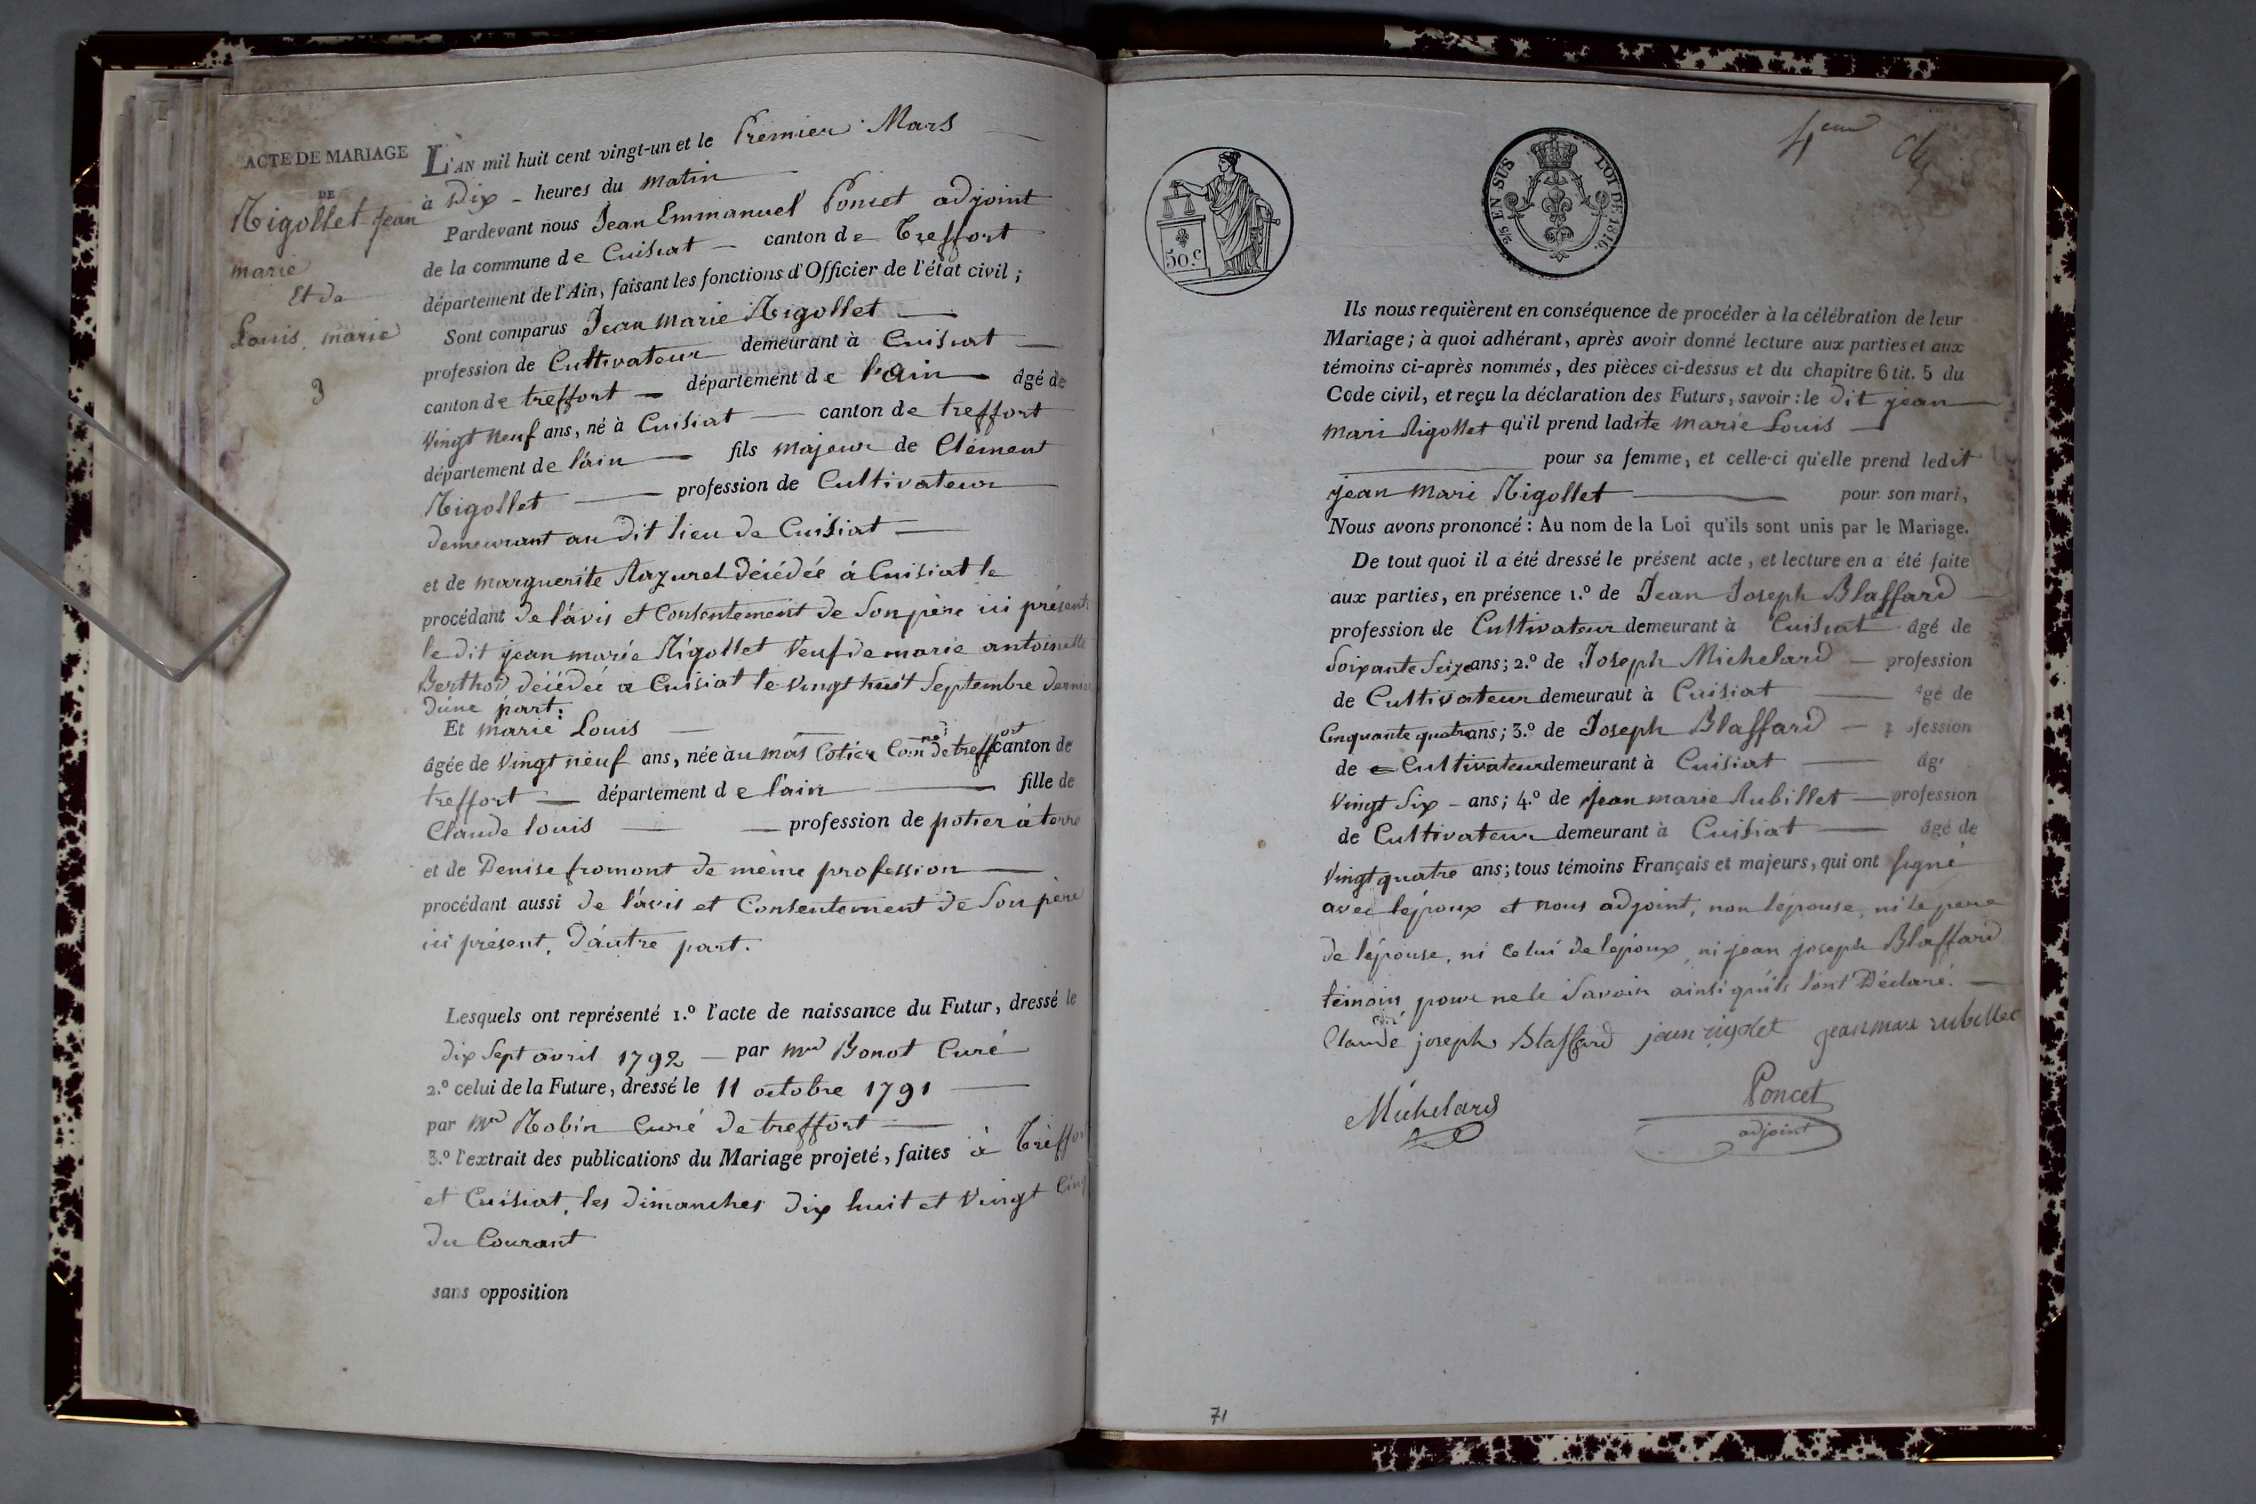 ACTE DE MARIAGE
DE
Rigollet jean
marie
Et de
Louis, marie
3
L'AN mil huit cent vingt-un et le Premier Mars
à Dix heures du matin
Pardevant nous Jean Emmanuel Poncet adjoint
de la commune de Cuisiat canton de Treffort
département de l'Ain, faisant les fonctions d'Officier de l'état civil;
Sont comparus Jean Marie Rigollet
profession de Cultivateur demeurant à Cuisiat
canton de treffort département de l'ain âgé de
vingt neuf ans, né à Cuisiat canton de treffort
département de l'ain fils majeur de Clément
Rigollet profession de Cultivateur
demeurant au dit lieu de Cuisiat
et de marguerite Razurel décédée à Cuisiat le
procédant de l'avis et Consentement de Son père ici présent
le dit jean marie Rigollet Veuf de marie antoinette
Berthod décédée a Cuisiat le vingt huit Septembre dernier
d'une part.
Et marie Louis
âgée de vingt neuf ans, née au mas Cotier Com.ne de treffort canton de
treffort département de l'ain fille de
Claude louis profession de potier à terre
et de Denise fromont de même profession
procédant aussi de l'avis et Consentement de Son père
ici présent, d'autre part.
Lesquels ont représenté 1.º l'acte de naissance du Futur, dressé le
dix Sept avril 1792 par Mr Bonot Curé
2.º celui de la Future, dressé le 11 octobre 1791
par Mr Robin Curé de treffort
3.º l'extrait des publications du Mariage projeté, faites à Treffort
et Cuisiat, les dimanches dix huit et vingt Cinq
du Courant
sans opposition
50.c
2/5 EN SUS LOI DE 1816.
4eme
Ils nous requièrent en conséquence de procéder à la célébration de leur
Mariage; à quoi adhérant, après avoir donné lecture aux parties et aux
témoins ci-après nommés, des pièces ci-dessus et du chapitre 6 tit. 5 du
Code civil, et reçu la déclaration des Futurs, savoir: le dit jean
mari Rigollet qu'il prend ladite marie Louis
pour sa femme, et celle-ci qu'elle prend ledit
jean mari Rigollet pour son mari,
Nous avons prononcé: Au nom de la Loi qu'ils sont unis par le Mariage.
De tout quoi il a été dressé le présent acte, et lecture en a été faite
aux parties, en présence 1.º de Jean Joseph Blaffard
profession de Cultivateur demeurant à Cuisiat âgé de
Soixante Seize ans; 2.º de Joseph Michelard profession
de Cultivateur demeurant à Cuisiat âgé de
Cinquante quatre ans; 3.º de Joseph Blaffard profession
de Cultivateur demeurant à Cuisiat âgé
vingt Six ans; 4.º de jean marie Rubillet profession
de Cultivateur demeurant à Cuisiat âgé de
vingt quatre ans; tous témoins Français et majeurs, qui ont Signé
avec l'époux et nous adjoint, non l'épouse, ni le pere
de l'épouse, ni celui de l'époux, ni jean joseph Blaffard
témoin, pour ne le Savoir ainsi qu'ils l'ont Déclaré.
Claude joseph Blaffard jean rigolet jean marie rubillet
Michelard
Poncet
adjoint
71